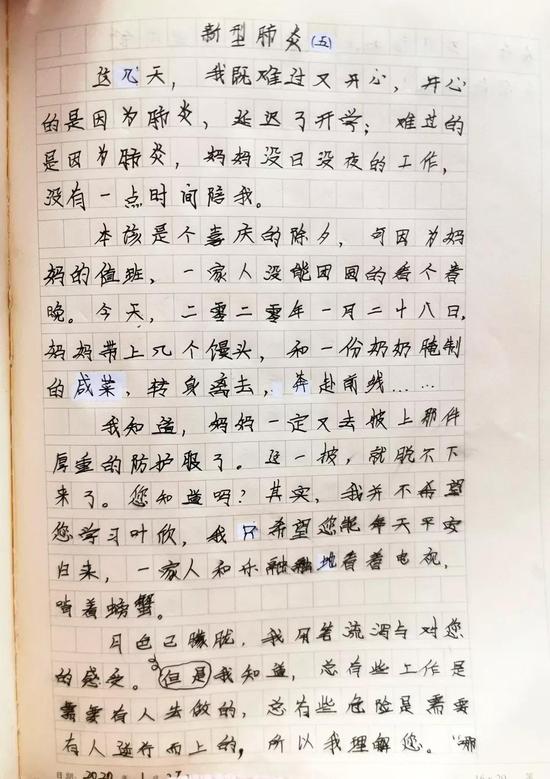 新型肺炎(五)
这几天，我既难过又开心，开心
的是因为肺炎，延迟了开学；难过的
是因为肺炎，妈妈没日没夜的工作，
没有一点时间陪我。
本该是个喜庆的除夕，可因为妈
妈的值班，一家人没能团圆的看个春
晚。今天，二零二零年一月二十八日，
妈妈带上几个馒头，和一份奶奶腌制
的咸菜，转身离去，奔赴前线……
我知道，妈妈一定又去披上那件
厚重的防护服了。这一披，就脱不下
来了。您知道吗？其实，我并不希望
您学习叶欣，我只希望您能每天平安
归来，一家人和乐融融地看着电视，
啃着螃蟹。
月色已朦胧，我用笔流泻与对您
的感受。但是我知道，总有些工作是
需要有人去做的，总有些危险是需要
有人逆行而上的，所以我理解您。“那
日期: 2020 年 1